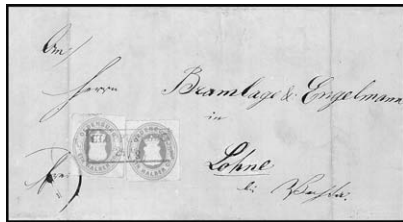 An
Herrn
Bramlage & Engelmann
in
frei
Lohne
bei Vechta.
OLDENBURG
OLDENBURG